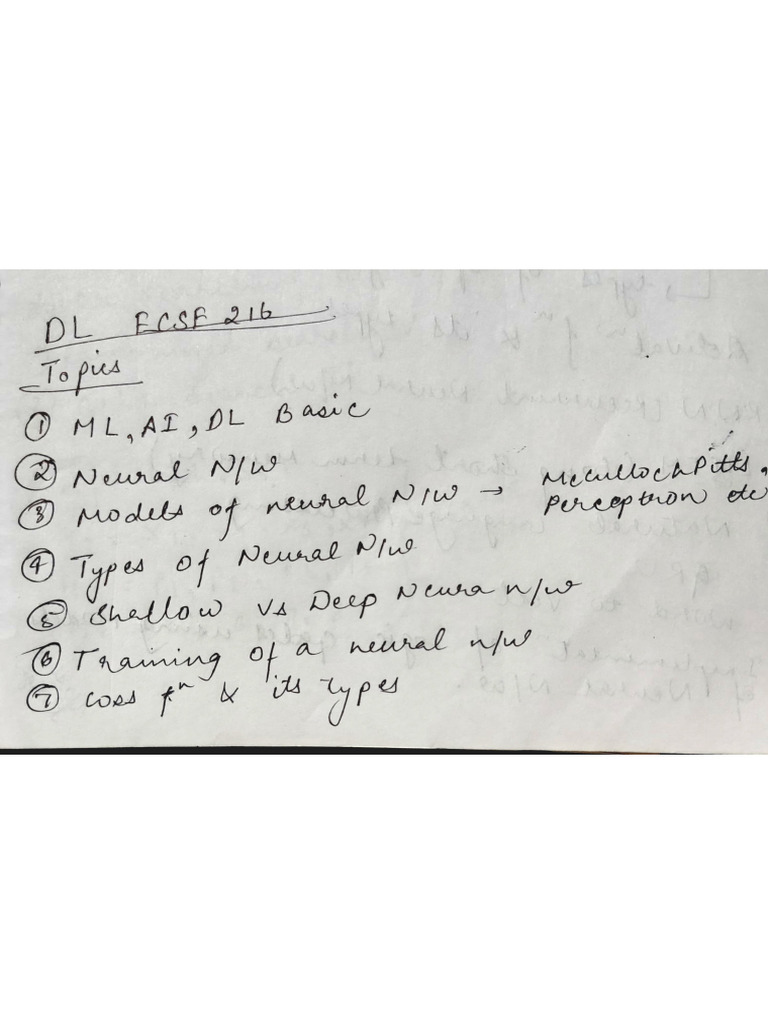 DL ECSE 216
Topics
① ML, AI, DL Basic
② Neural N/w
③ Models of neural N/w → McCulloch Pitts, Perceptron etc
④ Types of Neural N/w
⑤ Shallow vs Deep Neura n/w
⑥ Training of a neural n/w
⑦ Loss fⁿ & its Types